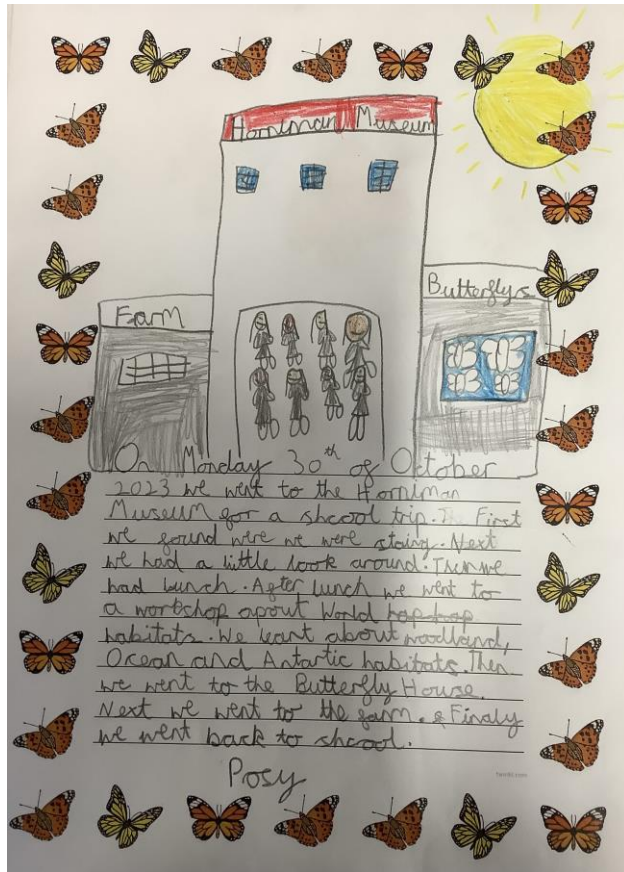 Horniman Museum
Farm
Butterflys
On Monday 30th of October
2023 we went to the Horniman
Museum for a shcool trip. The First
we found were we were staing. Next
we had a little look around. Then we
had lunch. After lunch we went to
a workshop apout World hap hap
habitats. We leant about woodland,
Ocean and Antartic habitats. Then
we went to the Butterfly House.
Next we went to the farm. & Finaly
we went back to shcool.
Posy